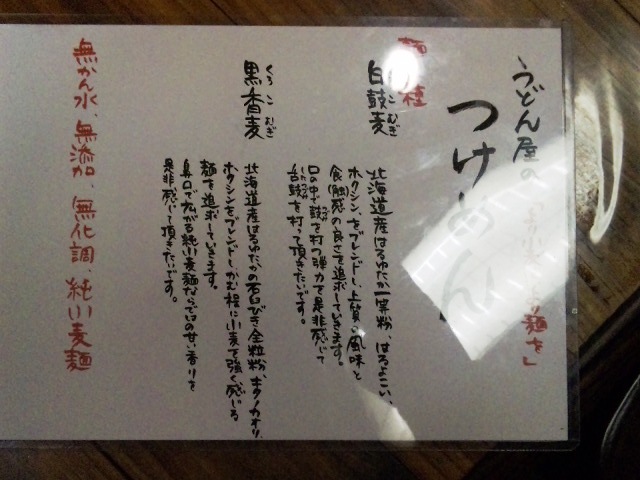 うどん屋の
つけめん
より麺を」
白鼓麦
こむぎ
北海道産はるゆたか一等粉、はるよこい、
ホクシン、をブレンドし、上質な風味と
食触感の良さを追求していきます。
口の中で鼓を打つ弾力で是非感じて
舌鼓を打って頂きたいです。
黒香麦
くろこむぎ
北海道産はるゆたかの石臼びき全粒粉、キタノカオリ、
ホクシンをブレンドし、かむ程に小麦を強く感じる
麺を追求していきます。
鼻口で広がる純小麦麺ならではの甘い香りを
是非感じて頂きたいです。
無かん水、無添加、無化調、純小麦麺